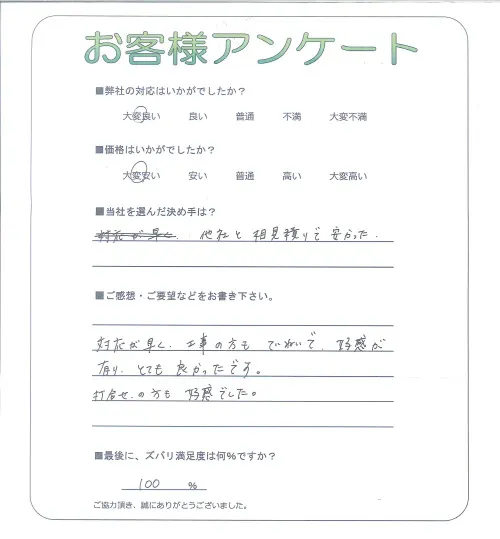 お客様アンケート
■弊社の対応はいかがでしたか?
大変良い 良い 普通 不満 大変不満
■価格はいかがでしたか?
大変安い 安い 普通 高い 大変高い
■当社を選んだ決め手は?
対応が早く、他社と相見積りで安かった.
■ご感想・ご要望などをお書き下さい。
対応が早く、工事の方もていねいで、好感が
有り、とても良かったです。
打合せの方も好感でした。
■最後に、ズバリ満足度は何%ですか?
100 %
ご協力頂き、誠にありがとうございました。